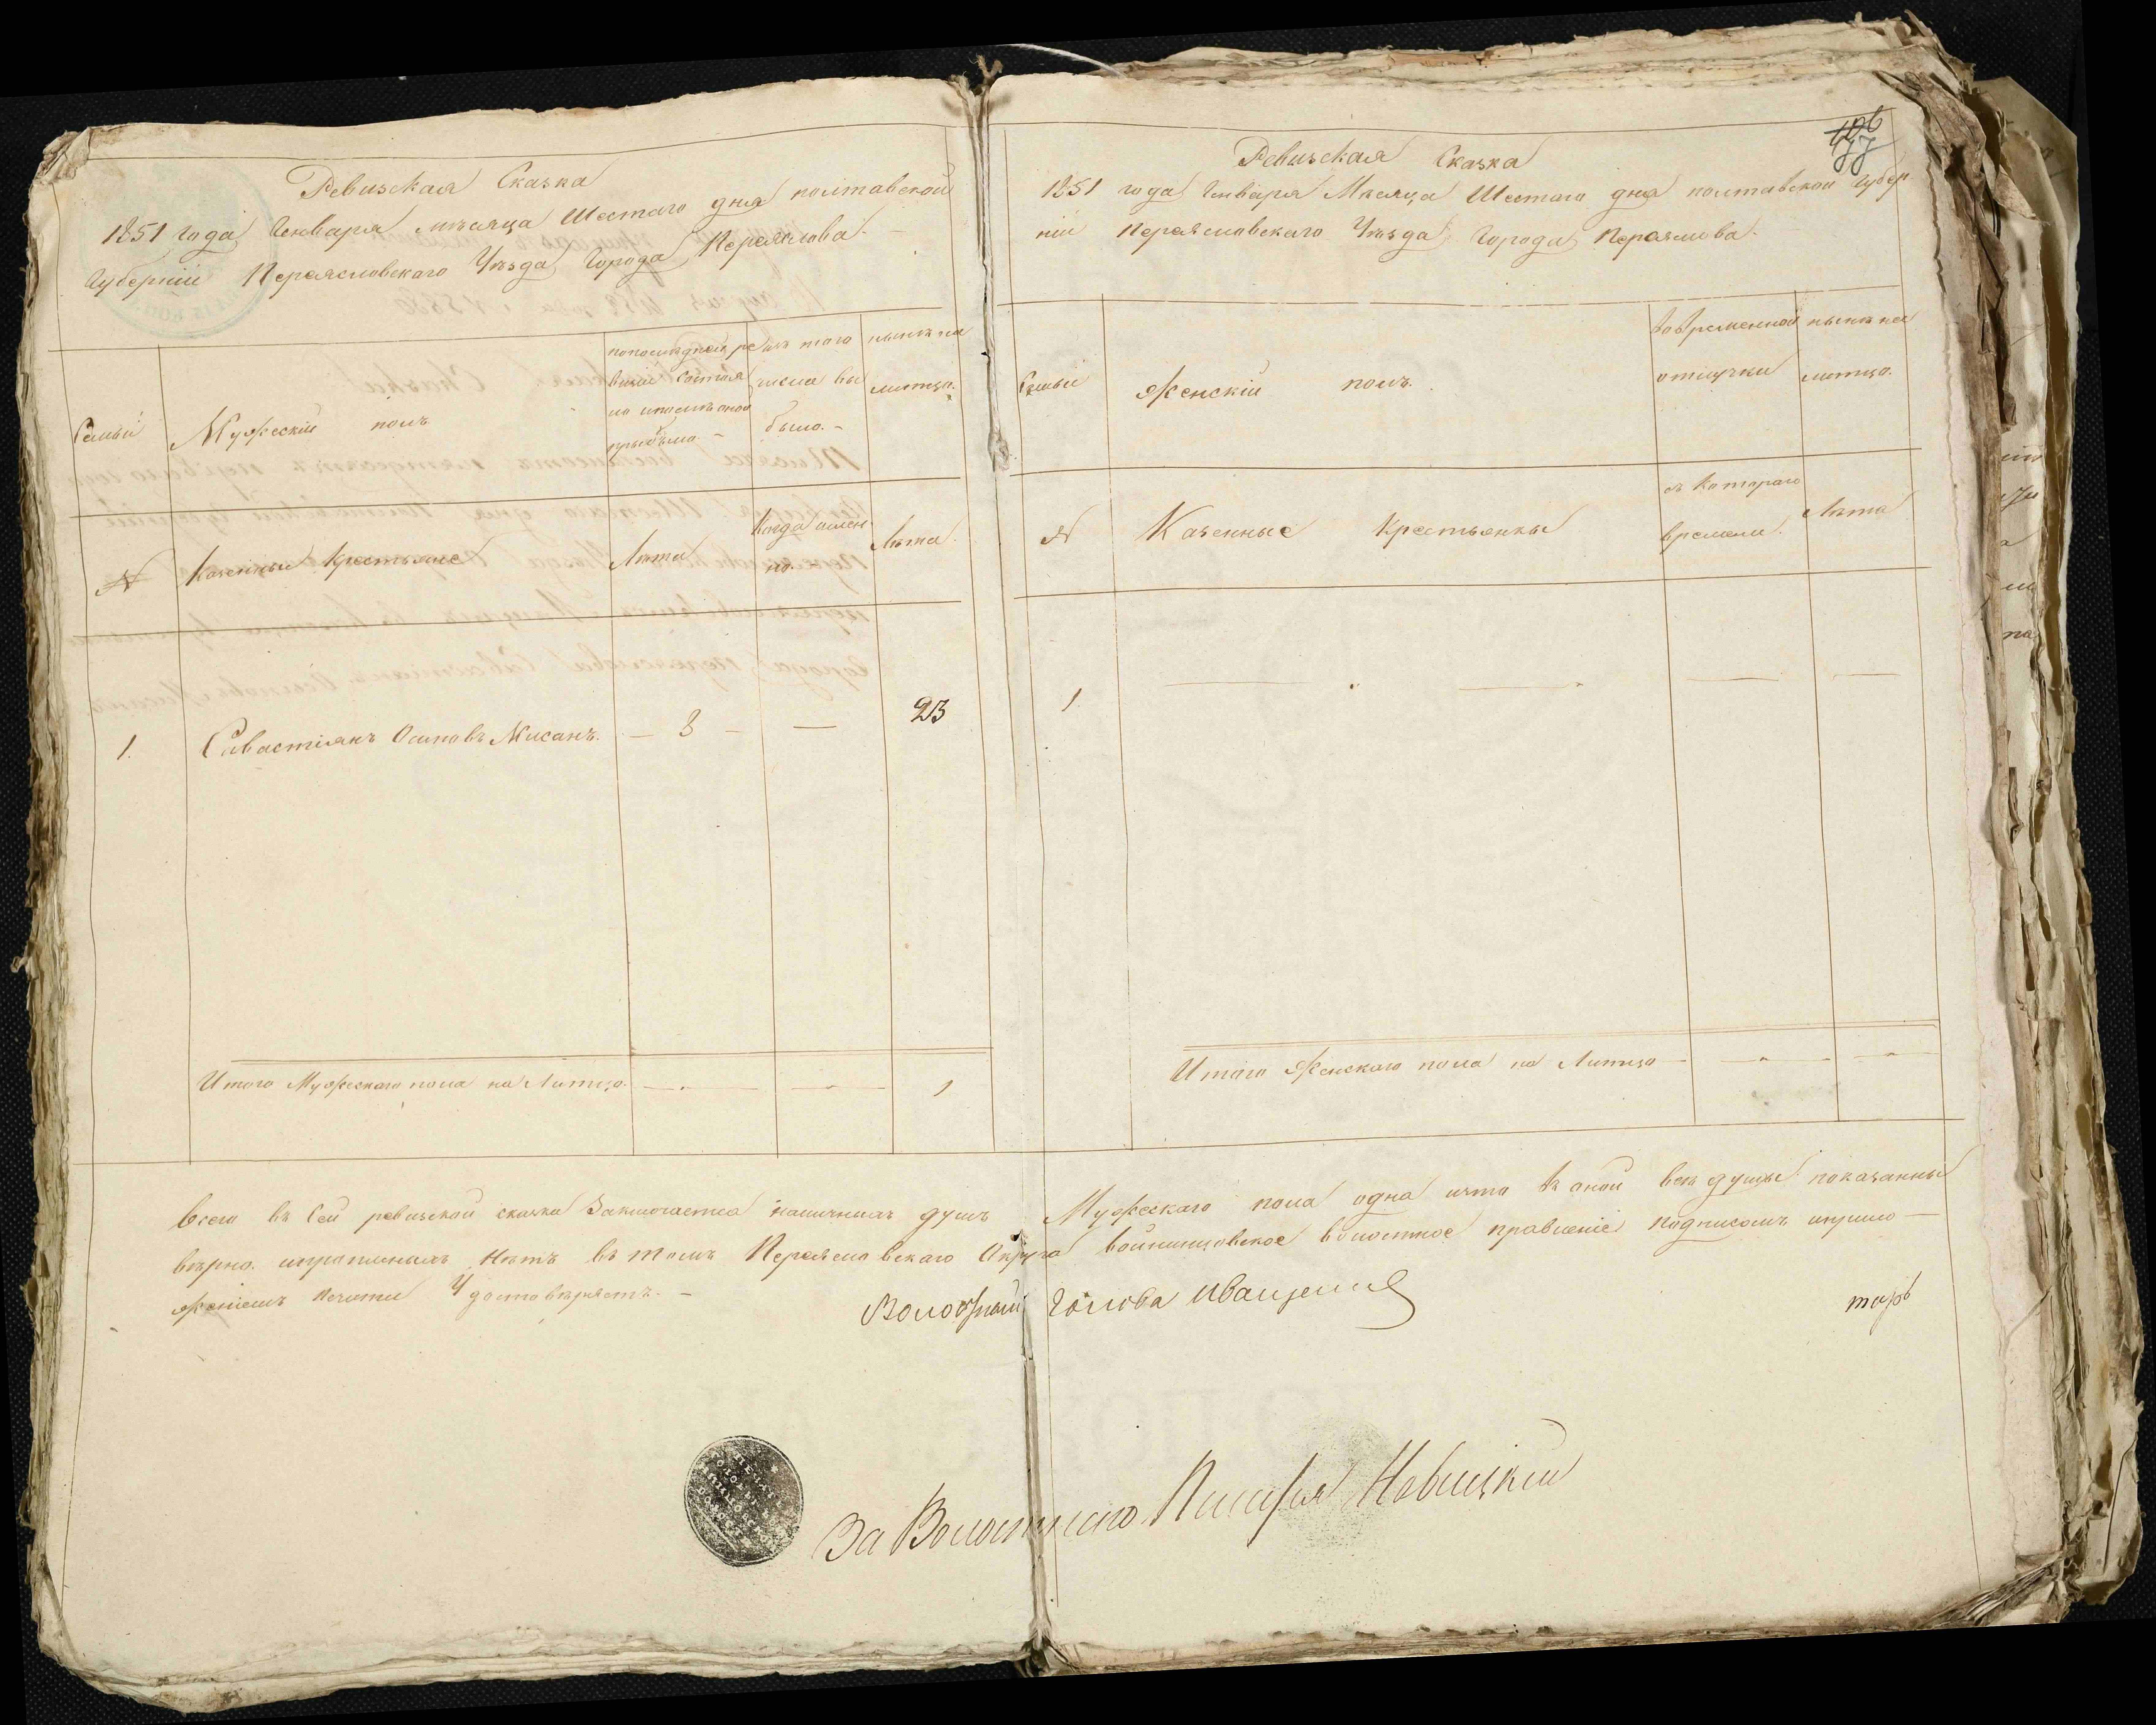 Ревизская Сказка
1851 года Генваря мѣсяца Шестаго дня полтавской
Губерніи Переясловского Уѣзда Города Переяслова.
Семьи
Мужескій полъ
попоследней ре
визіи состоя
ло ипослѣ оной
прибыло. –
изъ того
числа вы
было. –
нынѣ на
литцо.
№
Казенныи Крестьяне
Лѣта
Когда имен
но.
Лѣта.
1.
Савастіянъ Осиповъ Мисанъ.
— 3 —
—
23
Итого Мужескаго пола на Литцо.
1
106
77
Ревизская Сказка
1851 года Генваря Мѣсяца Шестаго дня полтавской Губер
ніи Переясловскаго Уѣзда Города Переяслова.
Семьи
Женскій полъ.
Вовременной
отлучки
нынѣ на
литцо.
№
Казенные Крестьянки
съ Котораго
времени.
Лѣта
1
Итого Женскаго пола на Литцо —
Всего въ сей ревизской сказке Заключается наличныхъ душъ Мужескаго пола одна ичто въ оной всѣ душы показанны
вѣрно. ипрописныхъ Нѣтъ въ томъ Переясловскаго Округа Войнинцовское волостное правленіе подписомъ иприло—
женіемъ Печати Удостовѣряетъ. –
Волостный Голова Иващенко
За Волостнаго Писаря Новицкій